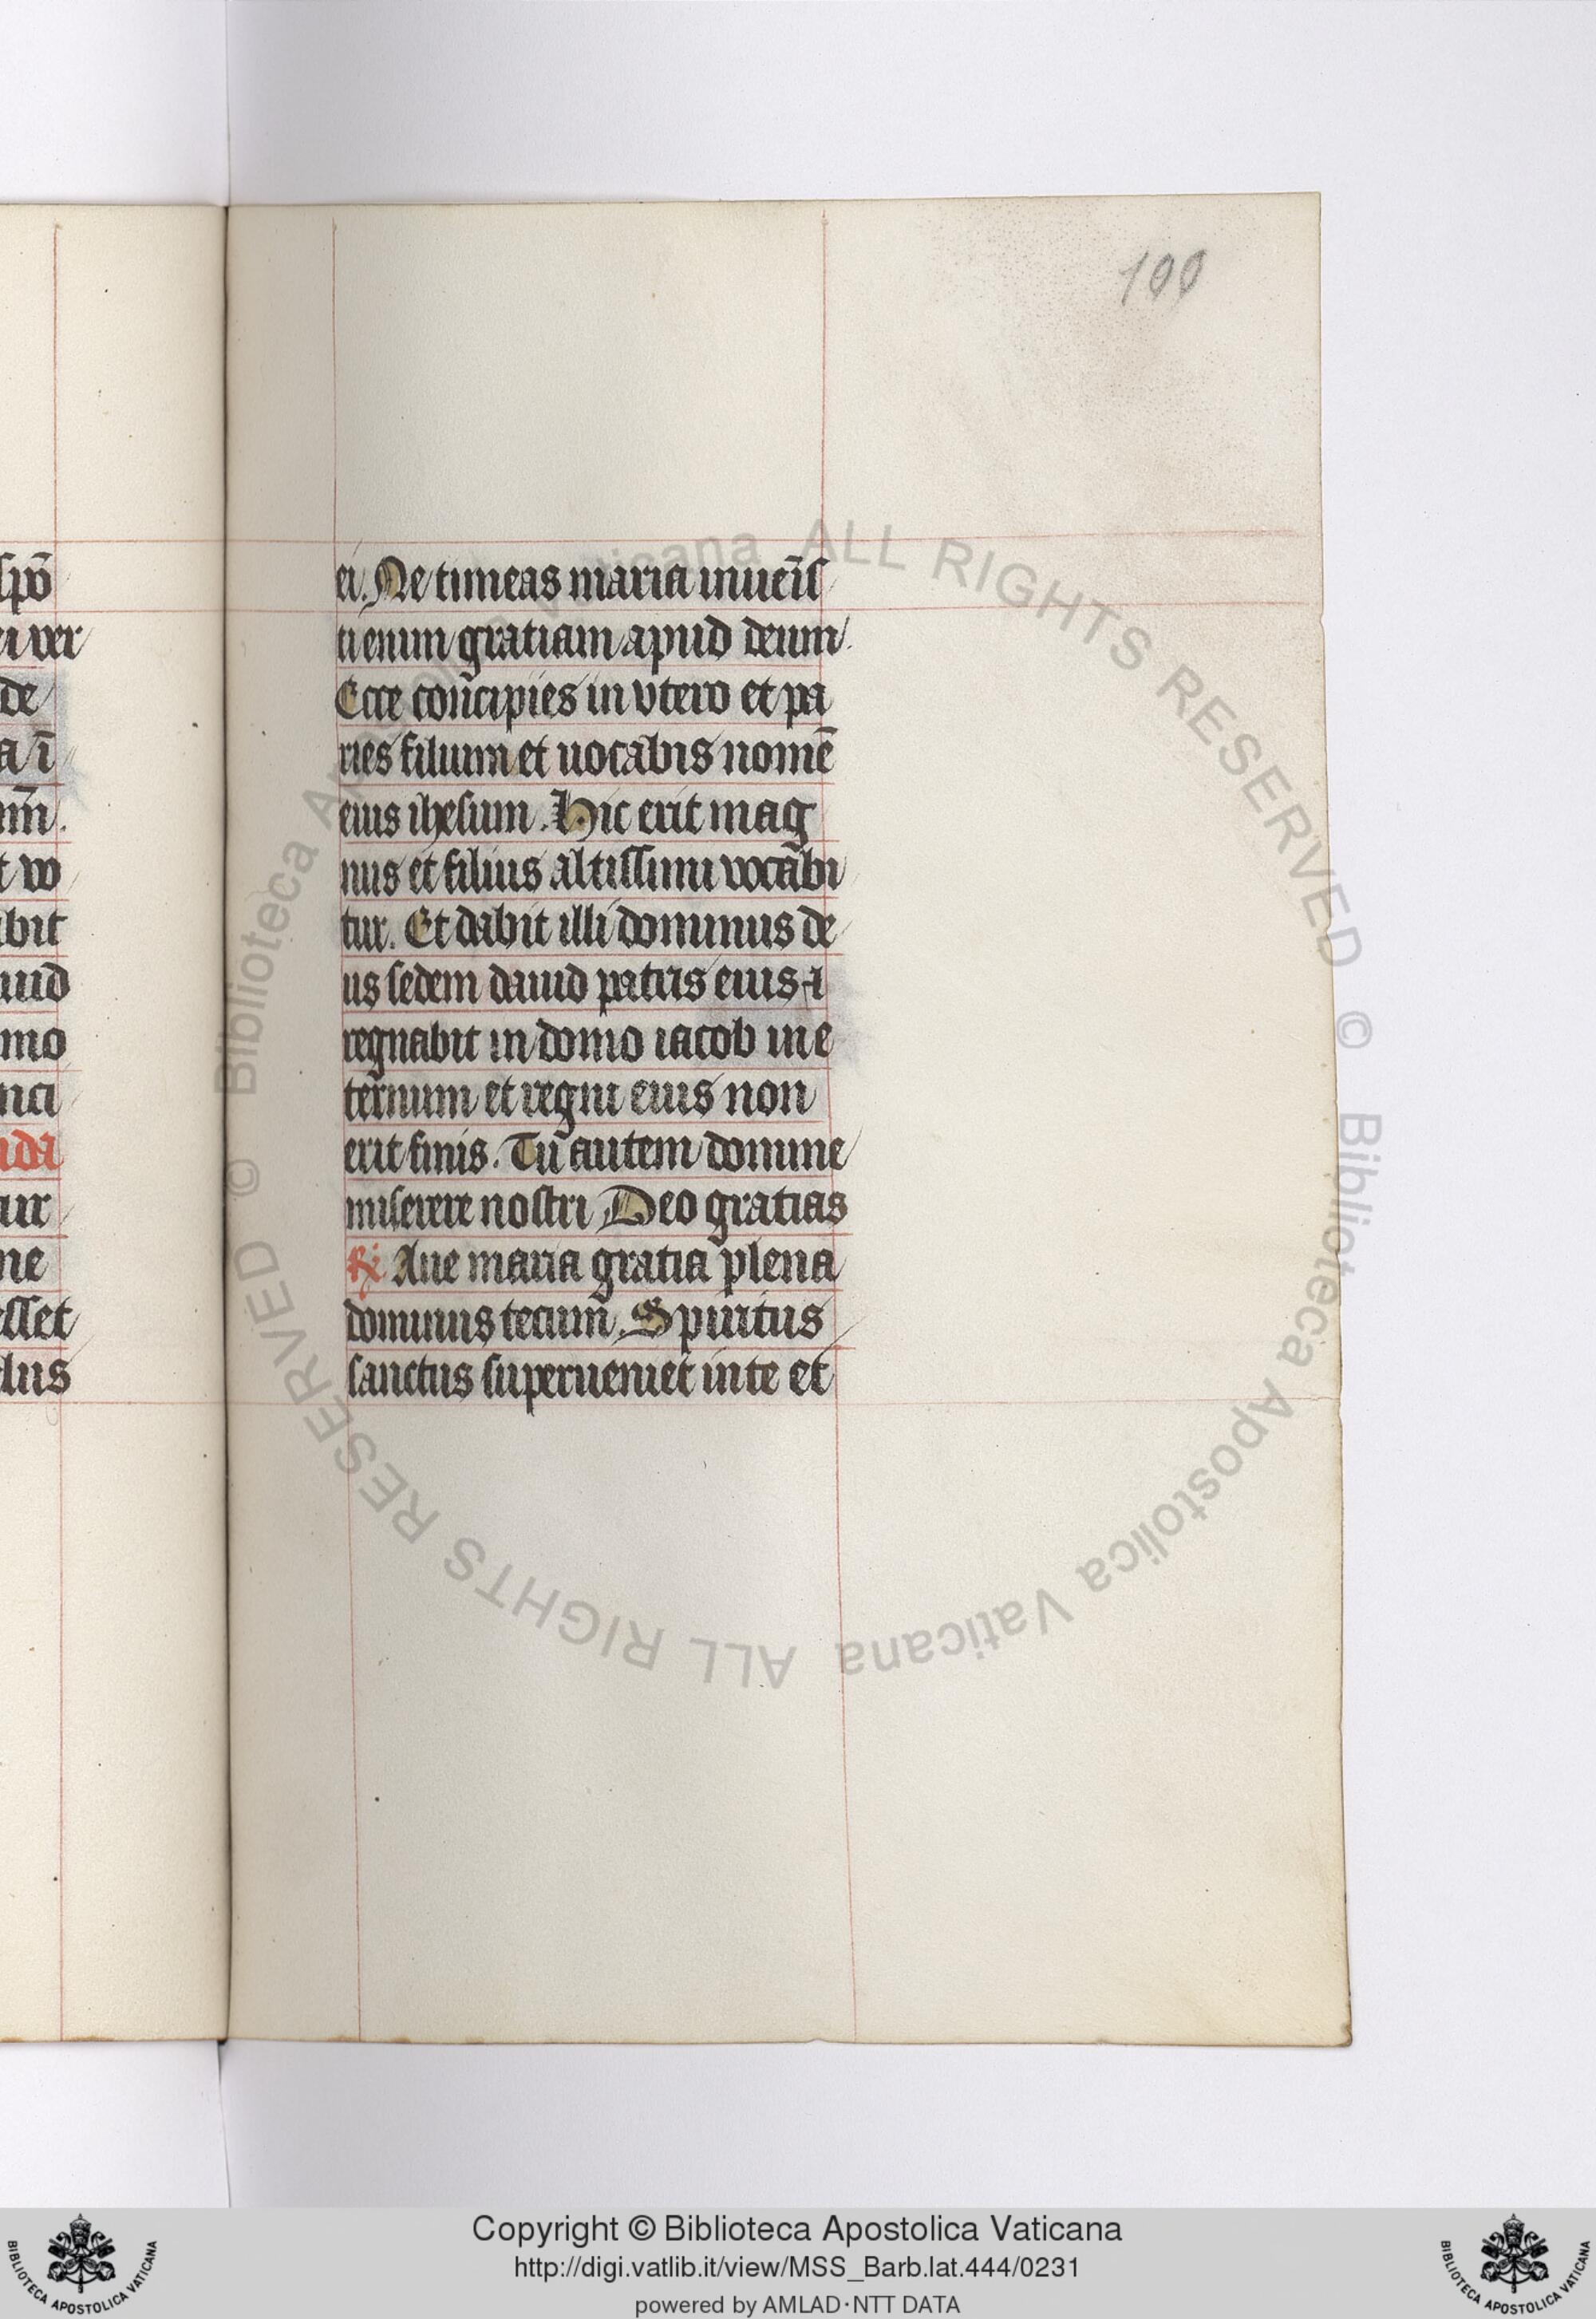 100
spō
ei ver
de
a ī
um̄.
t vo
abit
uid
mo
nci
ur
ne
esset
lus
ei. Ne timeas maria inuēis
ti enim gratiam apud deum.
Ecce concipies in vtero et pa
ries filium et uocabis nomē
eius ihesum. Hic erit mag
nus et filius altissimi vocabi
tur. Et dabit illi dominus de
us sedem dauid patris eius ⁊
regnabit in domo iacob in e
ternum et regni eius non
erit finis. Tu autem domine
miserere nostri Deo gratias
℟ Aue maria gratia plena
dominus tecum. Spiritus
sanctus superueniet in te et
© Biblioteca Apostolica Vaticana ALL RIGHTS RESERVED
© Biblioteca Apostolica Vaticana ALL RIGHTS RESERVED
Copyright © Biblioteca Apostolica Vaticana
http://digi.vatlib.it/view/MSS_Barb.lat.444/0231
powered by AMLAD·NTT DATA
BIBLIOTECA APOSTOLICA VATICANA
BIBLIOTECA APOSTOLICA VATICANA